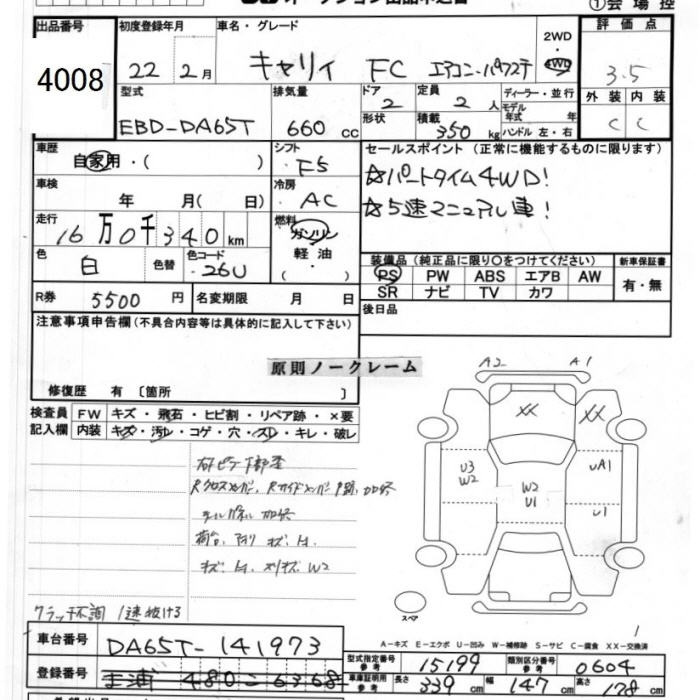 出品番号 初度登録年月 車名・グレード 2WD 評価点
4008 22年 2月 キャリィ FC エアコン・パワステ 4WD 3.5
型式 排気量 ドア 2 定員 2人 ディーラー・並行 外装 内装
EBD-DA65T 660cc 形状 積載 350kg モデル年式 年 ハンドル 左・右 C C
車歴 自家用・( ) シフト F5 セールスポイント (正常に機能するものに限ります)
☆パートタイム4WD!
車検 年 月( 日) 冷房 AC ☆5速マニュアル車!
走行 16万0千340km 燃料 ガソリン 軽油
色 白 色替 色コード 26U 装備品 (純正品に限り○をつけてください) 新車保証書
PS PW ABS エアB AW 有・無
SR ナビ TV カワ
R券 5500円 名変期限 月 日 後日品
注意事項申告欄 (不具合内容等は具体的に記入して下さい)
原則ノークレーム
修復歴 有 〔箇所 〕
検査員 FW キズ・飛石・ヒビ割・リペア跡・×要
記入欄 内装 キズ・汚レ・コゲ・穴・スレ・キレ・破レ
A2 A1
XX XX
U3 W2 UA1
W2 U1 U1
荷台、アオリ キズ、
キズ、 W2
クラッチ不調 1速抜ける
スペア
1
A-キズ E-エクボ U-凹み W-補修跡 S-サビ C-腐食 XX-交換済
車台番号 DA65T-141973
型式指定番号 参考 15199 類別区分番号 参考 0604
登録番号 480 こ 6368
車庫証明用 参考 長さ 339cm 幅 147cm 高さ 178cm